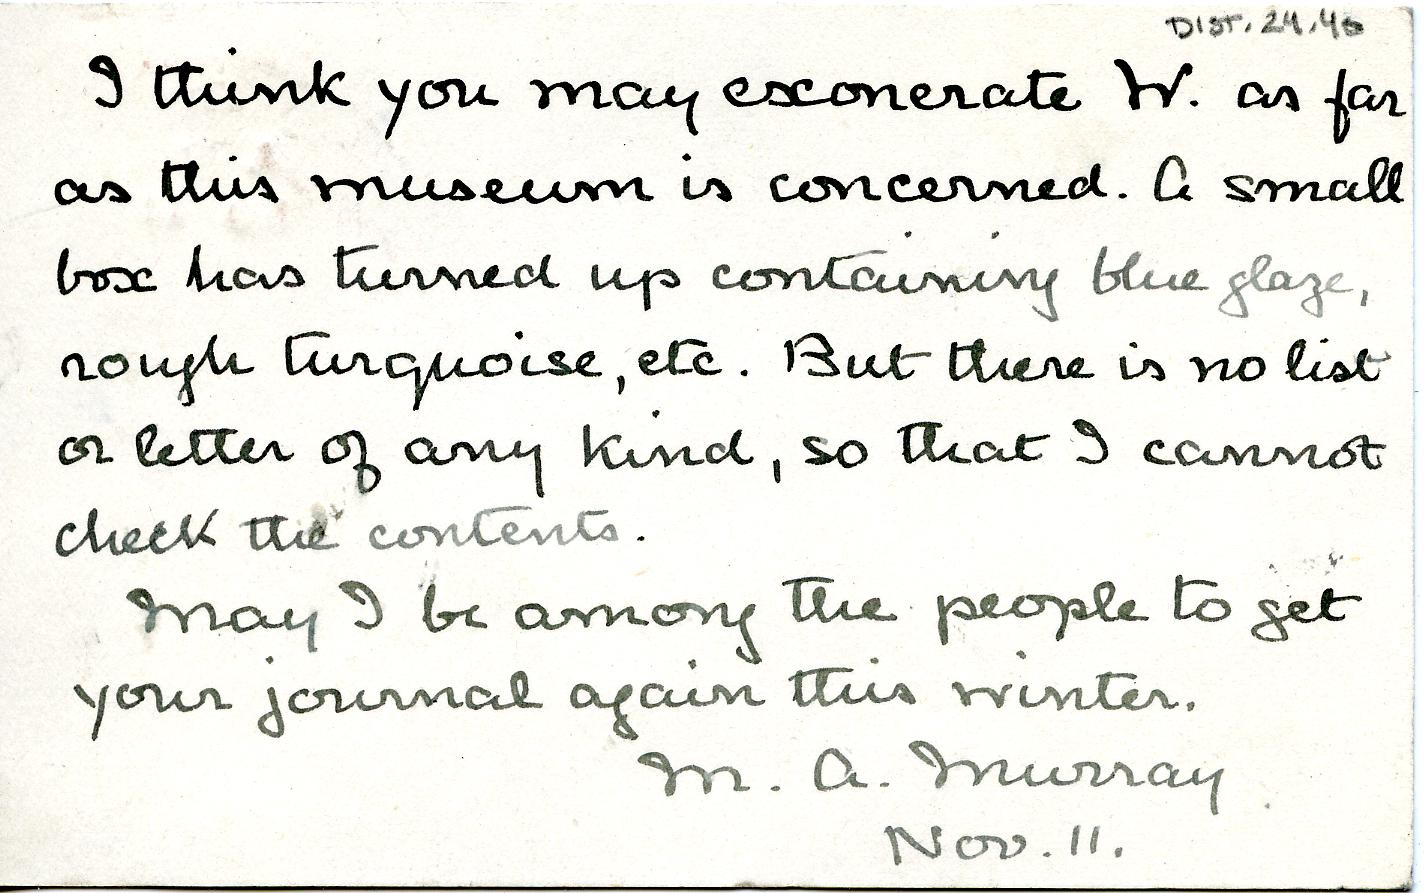 DIST. 24.46
I think you may exonerate W. as far
as this museum is concerned. A small
box has turned up containing blue glaze,
rough turquoise, etc. But there is no list
or letter of any kind, so that I cannot
check the contents.
May I be among the people to get
your journal again this winter.
M. A. Murray
Nov. 11.